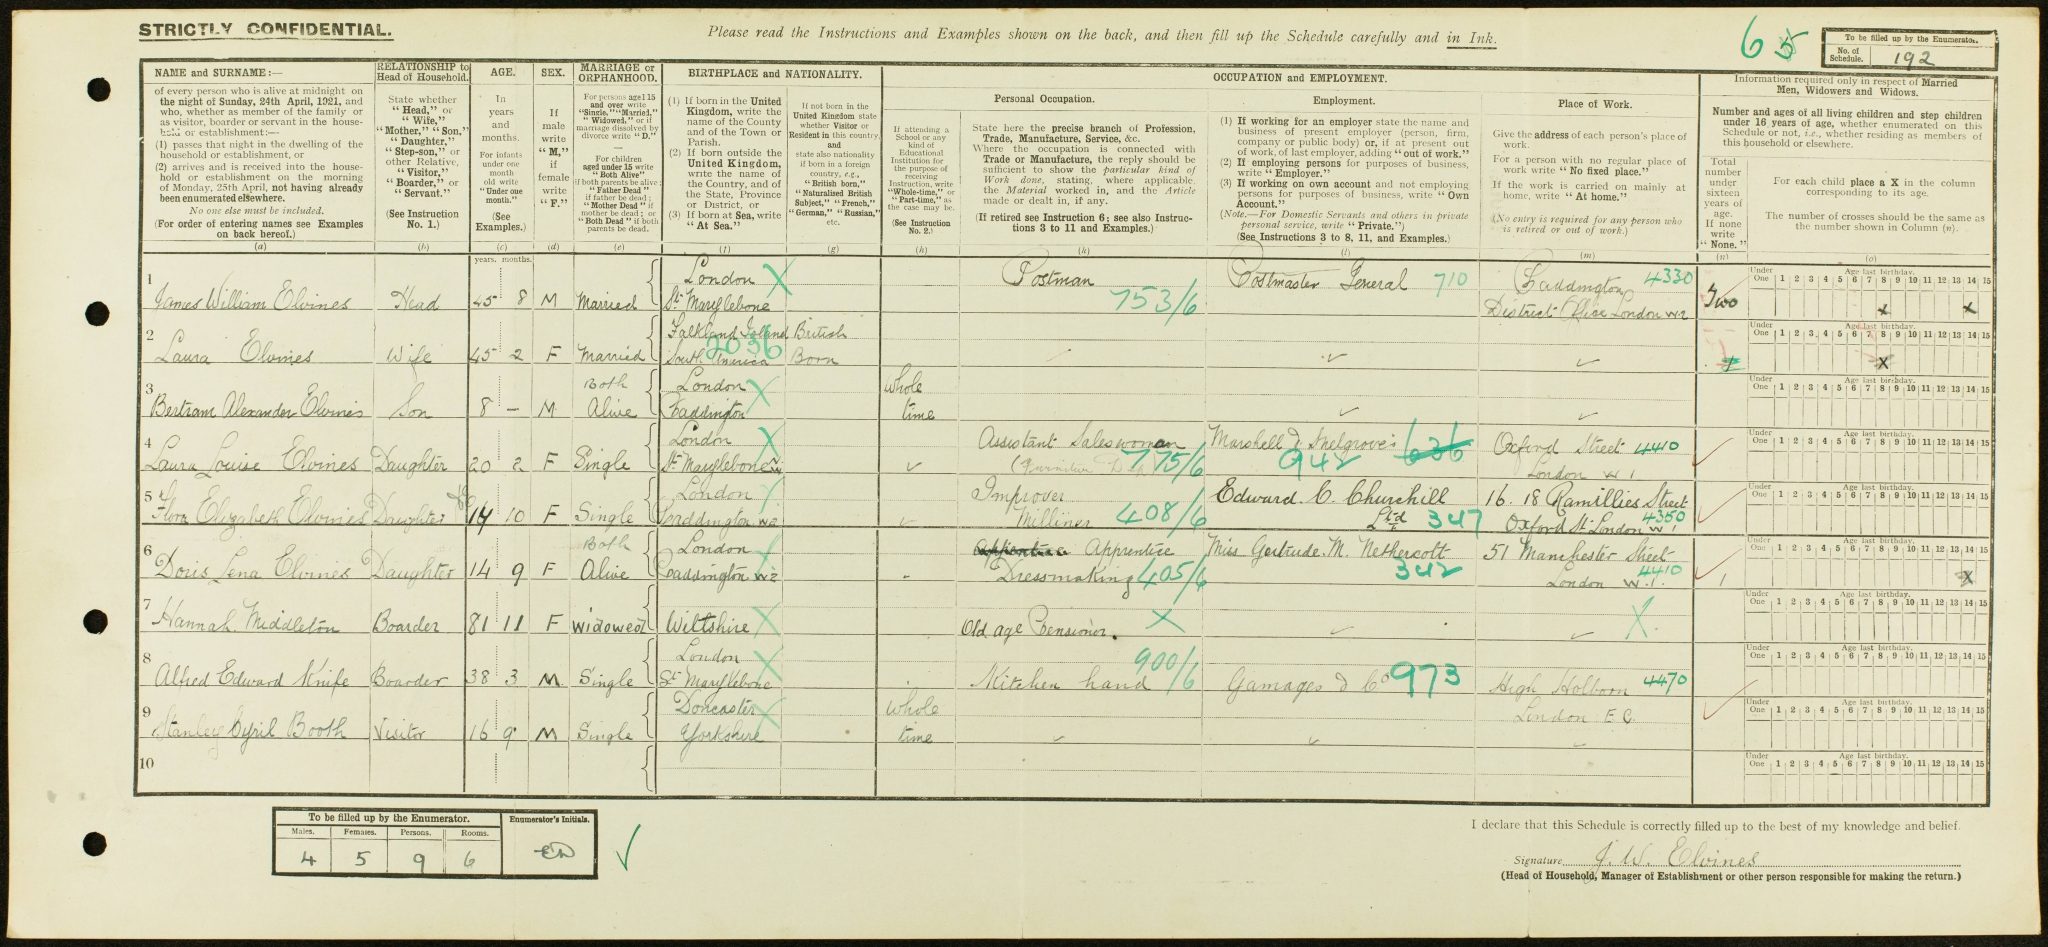 STRICTLY CONFIDENTIAL.
Please read the Instructions and Examples shown on the back, and then fill up the Schedule carefully and in Ink.
6 5
To be filled up by the Enumerator.
No. of Schedule. 192
NAME and SURNAME:—
of every person who is alive at midnight on
the night of Sunday, 24th April, 1921, and
who, whether as member of the family or
as visitor, boarder or servant in the house-
hold or establishment:—
(1) passes that night in the dwelling of the
household or establishment, or
(2) arrives and is received into the house-
hold or establishment on the morning
of Monday, 25th April, not having already
been enumerated elsewhere.
No one else must be included.
(For order of entering names see Examples
on back hereof.)
(a)
RELATIONSHIP to
Head of Household.
State whether
"Head," or
"Wife,"
"Mother," "Son,"
"Daughter,"
"Step-son," or
other Relative,
"Visitor,"
"Boarder," or
"Servant."
(See Instruction
No. 1.)
(b)
AGE.
In
years
and
months.
For infants
under one
month
old write
"Under one
month."
(See
Examples.)
(c)
SEX.
If
male
write
"M,"
if
female
write
"F."
(d)
MARRIAGE or
ORPHANHOOD.
For persons aged 15
and over write
"Single," "Married,"
"Widowed," or if
marriage dissolved by
divorce write "D."
For children
aged under 15 write
"Both Alive"
if both parents be alive;
"Father Dead"
if father be dead;
"Mother Dead" if
mother be dead; or
"Both Dead" if both
parents be dead.
(e)
BIRTHPLACE and NATIONALITY.
(1) If born in the United
Kingdom, write the
name of the County
and of the Town or
Parish.
(2) If born outside the
United Kingdom,
write the name of
the Country, and of
the State, Province
or District, or
(3) If born at Sea, write
"At Sea."
(f)
If not born in the
United Kingdom state
whether Visitor or
Resident in this country,
and
state also nationality
if born in a foreign
country, e.g.,
"British born,"
"Naturalised British
Subject," "French,"
"German," "Russian,"
etc.
(g)
OCCUPATION and EMPLOYMENT.
If attending a
School or any
kind of
Educational
Institution for
the purpose of
receiving
Instruction, write
"Whole-time," or
"Part-time," as
the case may be.
(See Instruction
No. 2.)
(h)
Personal Occupation.
State here the precise branch of Profession,
Trade, Manufacture, Service, &c.
Where the occupation is connected with
Trade or Manufacture, the reply should be
sufficient to show the particular kind of
Work done, stating, where applicable,
the Material worked in, and the Article
made or dealt in, if any.
(If retired see Instruction 6; see also Instruc-
tions 3 to 11 and Examples.)
(k)
Employment.
(1) If working for an employer state the name and
business of present employer (person, firm,
company or public body) or, if at present out
of work, of last employer, adding "out of work."
(2) If employing persons for purposes of business,
write "Employer."
(3) If working on own account and not employing
persons for purposes of business, write "Own
Account."
(Note.—For Domestic Servants and others in private
personal service, write "Private.")
(See Instructions 3 to 8, 11, and Examples.)
(l)
Place of Work.
Give the address of each person's place of
work.
For a person with no regular place of
work write "No fixed place."
If the work is carried on mainly at
home, write "At home."
(No entry is required for any person who
is retired or out of work.)
(m)
Information required only in respect of Married
Men, Widowers and Widows.
Number and ages of all living children and step children
under 16 years of age, whether enumerated on this
Schedule or not, i.e., whether residing as members of
this household or elsewhere.
Total
number
under
sixteen
years of
age.
If none
write
"None."
(n)
For each child place a X in the column
corresponding to its age.
The number of crosses should be the same as
the number shown in Column (n).
(o)
years. months.
1 James William Elvines Head 45 8 M Married London St Marylebone Postman 753/6 Postmaster General 710 Paddington 4330 District Office London W2 Two
Under One Age last birthday. 1 2 3 4 5 6 7 8 9 10 11 12 13 14 15
x x
2 Laura Elvines Wife 45 2 F Married Falkland Island South America 2036 British Born
Under One Age last birthday. 1 2 3 4 5 6 7 8 9 10 11 12 13 14 15
x
3 Bertram Alexander Elvines Son 8 – M Both Alive London Paddington Whole time
Under One Age last birthday. 1 2 3 4 5 6 7 8 9 10 11 12 13 14 15
4 Laura Louise Elvines Daughter 20 2 F Single London St Marylebone W Assistant Saleswoman 775/6 Marshell & Snelgrove's 636 942 Oxford Street 4410 London W 1
Under One Age last birthday. 1 2 3 4 5 6 7 8 9 10 11 12 13 14 15
5 Flora Elizabeth Elvines Daughter 14 10 F Single London Paddington W2 Improver Milliner 408/6 Edward. C. Churchill Ltd 347 16. 18 Ramillies Street Oxford St London W 1 4350
Under One Age last birthday. 1 2 3 4 5 6 7 8 9 10 11 12 13 14 15
6 Doris Lena Elvines Daughter 14 9 F Both Alive London Paddington W2 Apprentice Apprentice Dressmaking 405/6 Miss Gertrude. M. Nethercott 342 51 Manchester Street 4410 London W. 1. 1
Under One Age last birthday. 1 2 3 4 5 6 7 8 9 10 11 12 13 14 15
x
7 Hannah Middleton Boarder 81 11 F Widowed Wiltshire Old age Pensioner.
Under One Age last birthday. 1 2 3 4 5 6 7 8 9 10 11 12 13 14 15
8 Alfred Edward Knife Boarder 38 3 M Single London St Marylebone Kitchen hand 900/6 Gamages & Co 973 High Holborn 4470 London E C
Under One Age last birthday. 1 2 3 4 5 6 7 8 9 10 11 12 13 14 15
9 Stanley Cyril Booth Visitor 16 9 M Single Doncaster Yorkshire Whole time
Under One Age last birthday. 1 2 3 4 5 6 7 8 9 10 11 12 13 14 15
10
Under One Age last birthday. 1 2 3 4 5 6 7 8 9 10 11 12 13 14 15
To be filled up by the Enumerator.
Males. Females. Persons. Rooms.
4 5 9 6
Enumerator's Initials.
I declare that this Schedule is correctly filled up to the best of my knowledge and belief.
Signature J. W. Elvines
(Head of Household, Manager of Establishment or other person responsible for making the return.)